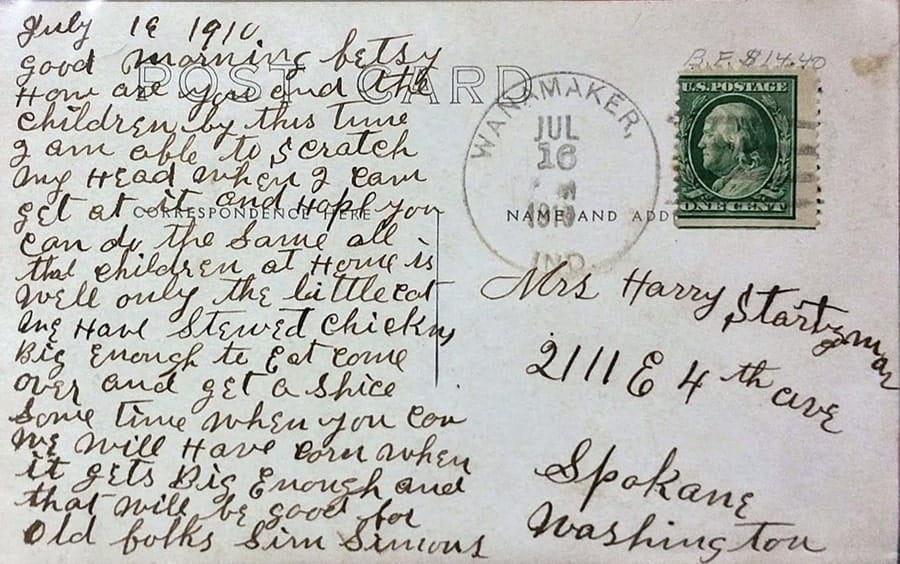 July 16 1910
good morning betsy
How are you and the
children by this time
I am able to scratch
my Head when I can
get at it and Hope you
can do the same all
the children at Home is
well only the little cat
we Have Stewed chickns
Big Enough to Eat come
over and get a Shice
Some time when you can
we will Have corn when
it gets Big Enough and
that will be good for
old folks Sim Simons
POST CARD
CORRESPONDENCE HERE
NAME AND ADD
B.F. $14.40
U.S. POSTAGE
ONE CENT
WANAMAKER,
JUL
16
1910
IND.
Mrs Harry Startzman
2111 E 4th ave
Spokane
Washington